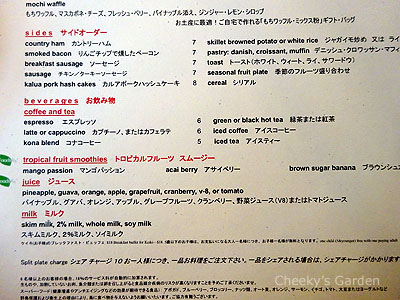 mochi waffle
もちワッフル、マスカポネ・チーズ、フレッシュ・ベリー、パイナップル添え、ジンジャー・レモン・シロップ
お土産に最適！ご自宅で作れる「もちワッフル・ミックス粉」ギフト・バッグ
sides サイドオーダー
country ham カントリーハム 7 skillet browned potato or white rice ジャガイモ炒め 又は ライ
smoked bacon りんごチップで燻したベーコン 7 pastry: danish, croissant, muffin デニッシュ・クロワッサン・マフィ
breakfast sausage ソーセージ 7 toast トースト(ホワイト、ウィート、ライ、サワードウ)
sausage チキンノターキーソーセージ 7 seasonal fruit plate 季節のフルーツ盛り合わせ
kalua pork hash cakes カルアポークハッシュケーキ 8 cereal シリアル
beverages お飲み物
coffee and tea
espresso エスプレッソ 6 green or black hot tea 緑茶または紅茶
latte or cappuccino カプチーノ、またはカフェラテ 6 iced coffee アイスコーヒー
kona blend コナコーヒー 5 iced tea アイスティー
tropical fruit smoothies トロピカルフルーツ スムージー
mango passion マンゴパッション acai berry アサイベリー brown sugar banana ブラウンシュ
juice ジュース
pineapple, guava, orange, apple, grapefruit, cranberry, v-8, or tomato
パイナップル、グアバ、オレンジ、アップル、グレープフルーツ、クランベリー、野菜ジュース(V8)またはトマトジュース
milk ミルク
skim milk, 2% milk, whole milk, soy milk
スキムミルク、2%ミルク、ソイミルク
Split plate charge シェア チャージ 10 お一人様につき、一品お料理をご注文下さい。一品をシェアされる場合は、シェアチャージがかかります
Cheeky's Garden